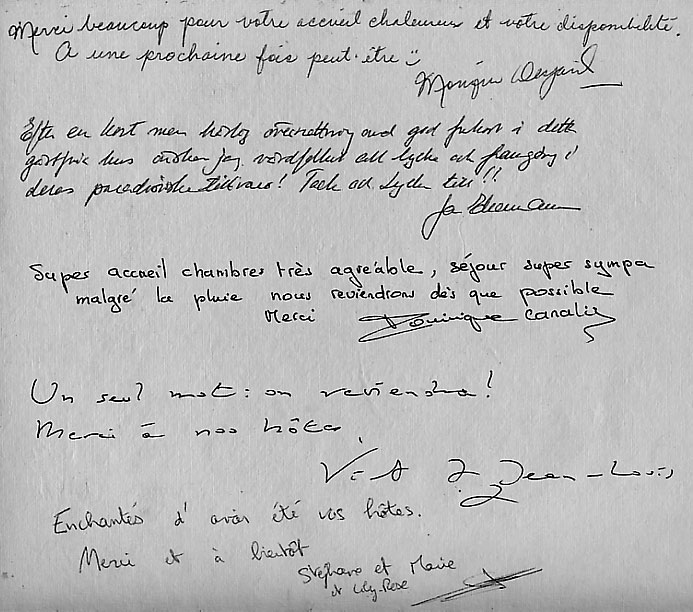 Merci beaucoup pour votre accueil chaleureux et votre disponibilité.
A une prochaine fois peut-être
Monique
Efter en kort men övernattning och god frukost i detta
hus önskar jag all lycka och framgång i
deras paradisiska Tack och lycka till!!
Super accueil chambres très agréable, séjour super sympa
malgré la pluie nous reviendrons dès que possible
Merci Dominique Canalis
Un seul mot : on reviendra!
Merci à nos hôtes
Jean-Louis
Enchantés d'avoir été vos hôtes.
Merci et à bientôt
Stéphane et Marie
et Lily-Rose